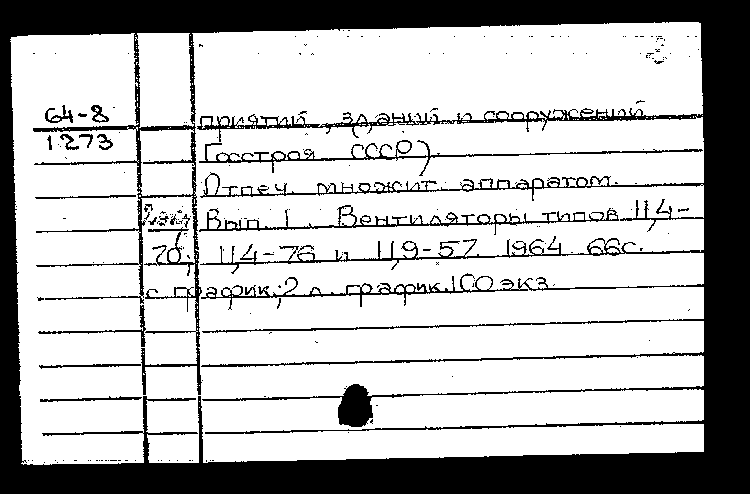 64-8
1273
приятий, зданий и сооружений
Госстроя СССР).
Отпеч. множит. аппаратом.
Вып. 1. Вентиляторы типов Ц4-
70; Ц4-76 и Ц9-57. 1964. 66с.
с график.; 2 л. график. 100 экз.